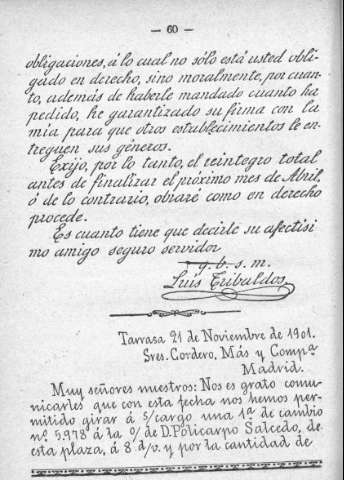 — 60 —
obligaciones, á lo cual no sólo está usted obli-
gado en derecho, sino moralmente, por cuan-
to, además de haberle mandado cuanto ha
pedido, he garantizado su firma con la
mía para que otros establecimientos le en-
treguen sus géneros.
Exijo, por lo tanto, el reintegro total
antes de finalizar el próximo mes de Abril,
ó de lo contrario, obraré como en derecho
procede.
Es cuanto tiene que decirle su afectísi
mo amigo seguro servidor
q. b. s. m.
Luis Tribaldos
Tarrasa 21 de Noviembre de 1901.
Sres. Cordero, Más y Compª
Madrid.
Muy señores nuestros: Nos es grato comu-
nicarles que con esta fecha nos hemos per-
mitido girar á s/ cargo una 1ª de cambio
nº 5.978 á la o/ de D. Policarpo Salcedo, de
esta plaza, á 8 d/v. y por la cantidad de